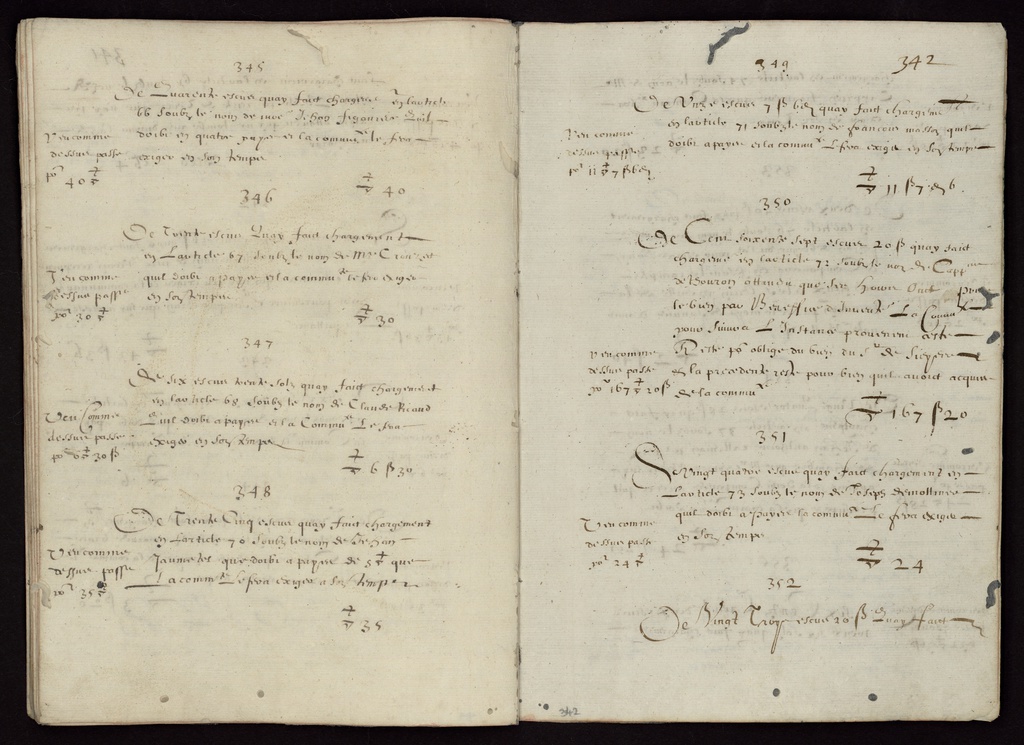 345
De Quarente escus quay fait chargement en larticle
66 soubz le nom de
doibt en quatre payes et la commute le fera
exiger en son temps
Veu comme
dessus passe
por 40
40
346
De Trente escus quay fait chargement
en Larticle 67 soubz le nom de Mre
quil doibt a payer et la commute le fera exiger
en son temps
Veu comme
dessus passe
por 30
30
347
De six escus trente solz quay fait chargement
en larticle 68 soubz le nom de Claude Ricaud
quil doibt a payer et la Commte Le fera
exiger en son temps
Veu Comme
dessus passe
por 6 30 ß
6 ß 30
348
De Trente Cinq escus quay fait chargement
en Larticle 70 soubz le nom de Jehan
Jaumetes que doibt a payer de 5 que
La commte Le fera exiger a son temps
Veu comme
dessus passe
por 35
35
349
342
De Unze escus 7 ß 6 d quay fait chargement
en larticle 71 soubz le nom de francois massez quil
doibt a payer et la commte Le fera exiger en son temps
Veu comme
dessus passe
por 11 7 ß 6 d
11 ß 7 d 6
350
De Cent soixente sept escus 20 ß quay fait
chargement en larticle 72 soubz le nom de Cappne
de Bouron attandu que ses hoirs Ont prins
le bien par Beneffice dInvente La Commte
pour suivra LInstance provenent ceste
Reste por oblige du bien du Sr de
et la precedente reste pour bien quil avoict acquis
de la commute
Veu comme
dessus passe
por 167 20 ß
167 ß 20
351
De Vingt quatre escus quay fait chargement en
Larticle 73 soubz le nom de Joseph
quil doibt a payer la commute Le fera exiger
en son temps
Veu comme
dessus passe
por 24
24
352
De Vingt Troys escus 20 ß quay fait
342